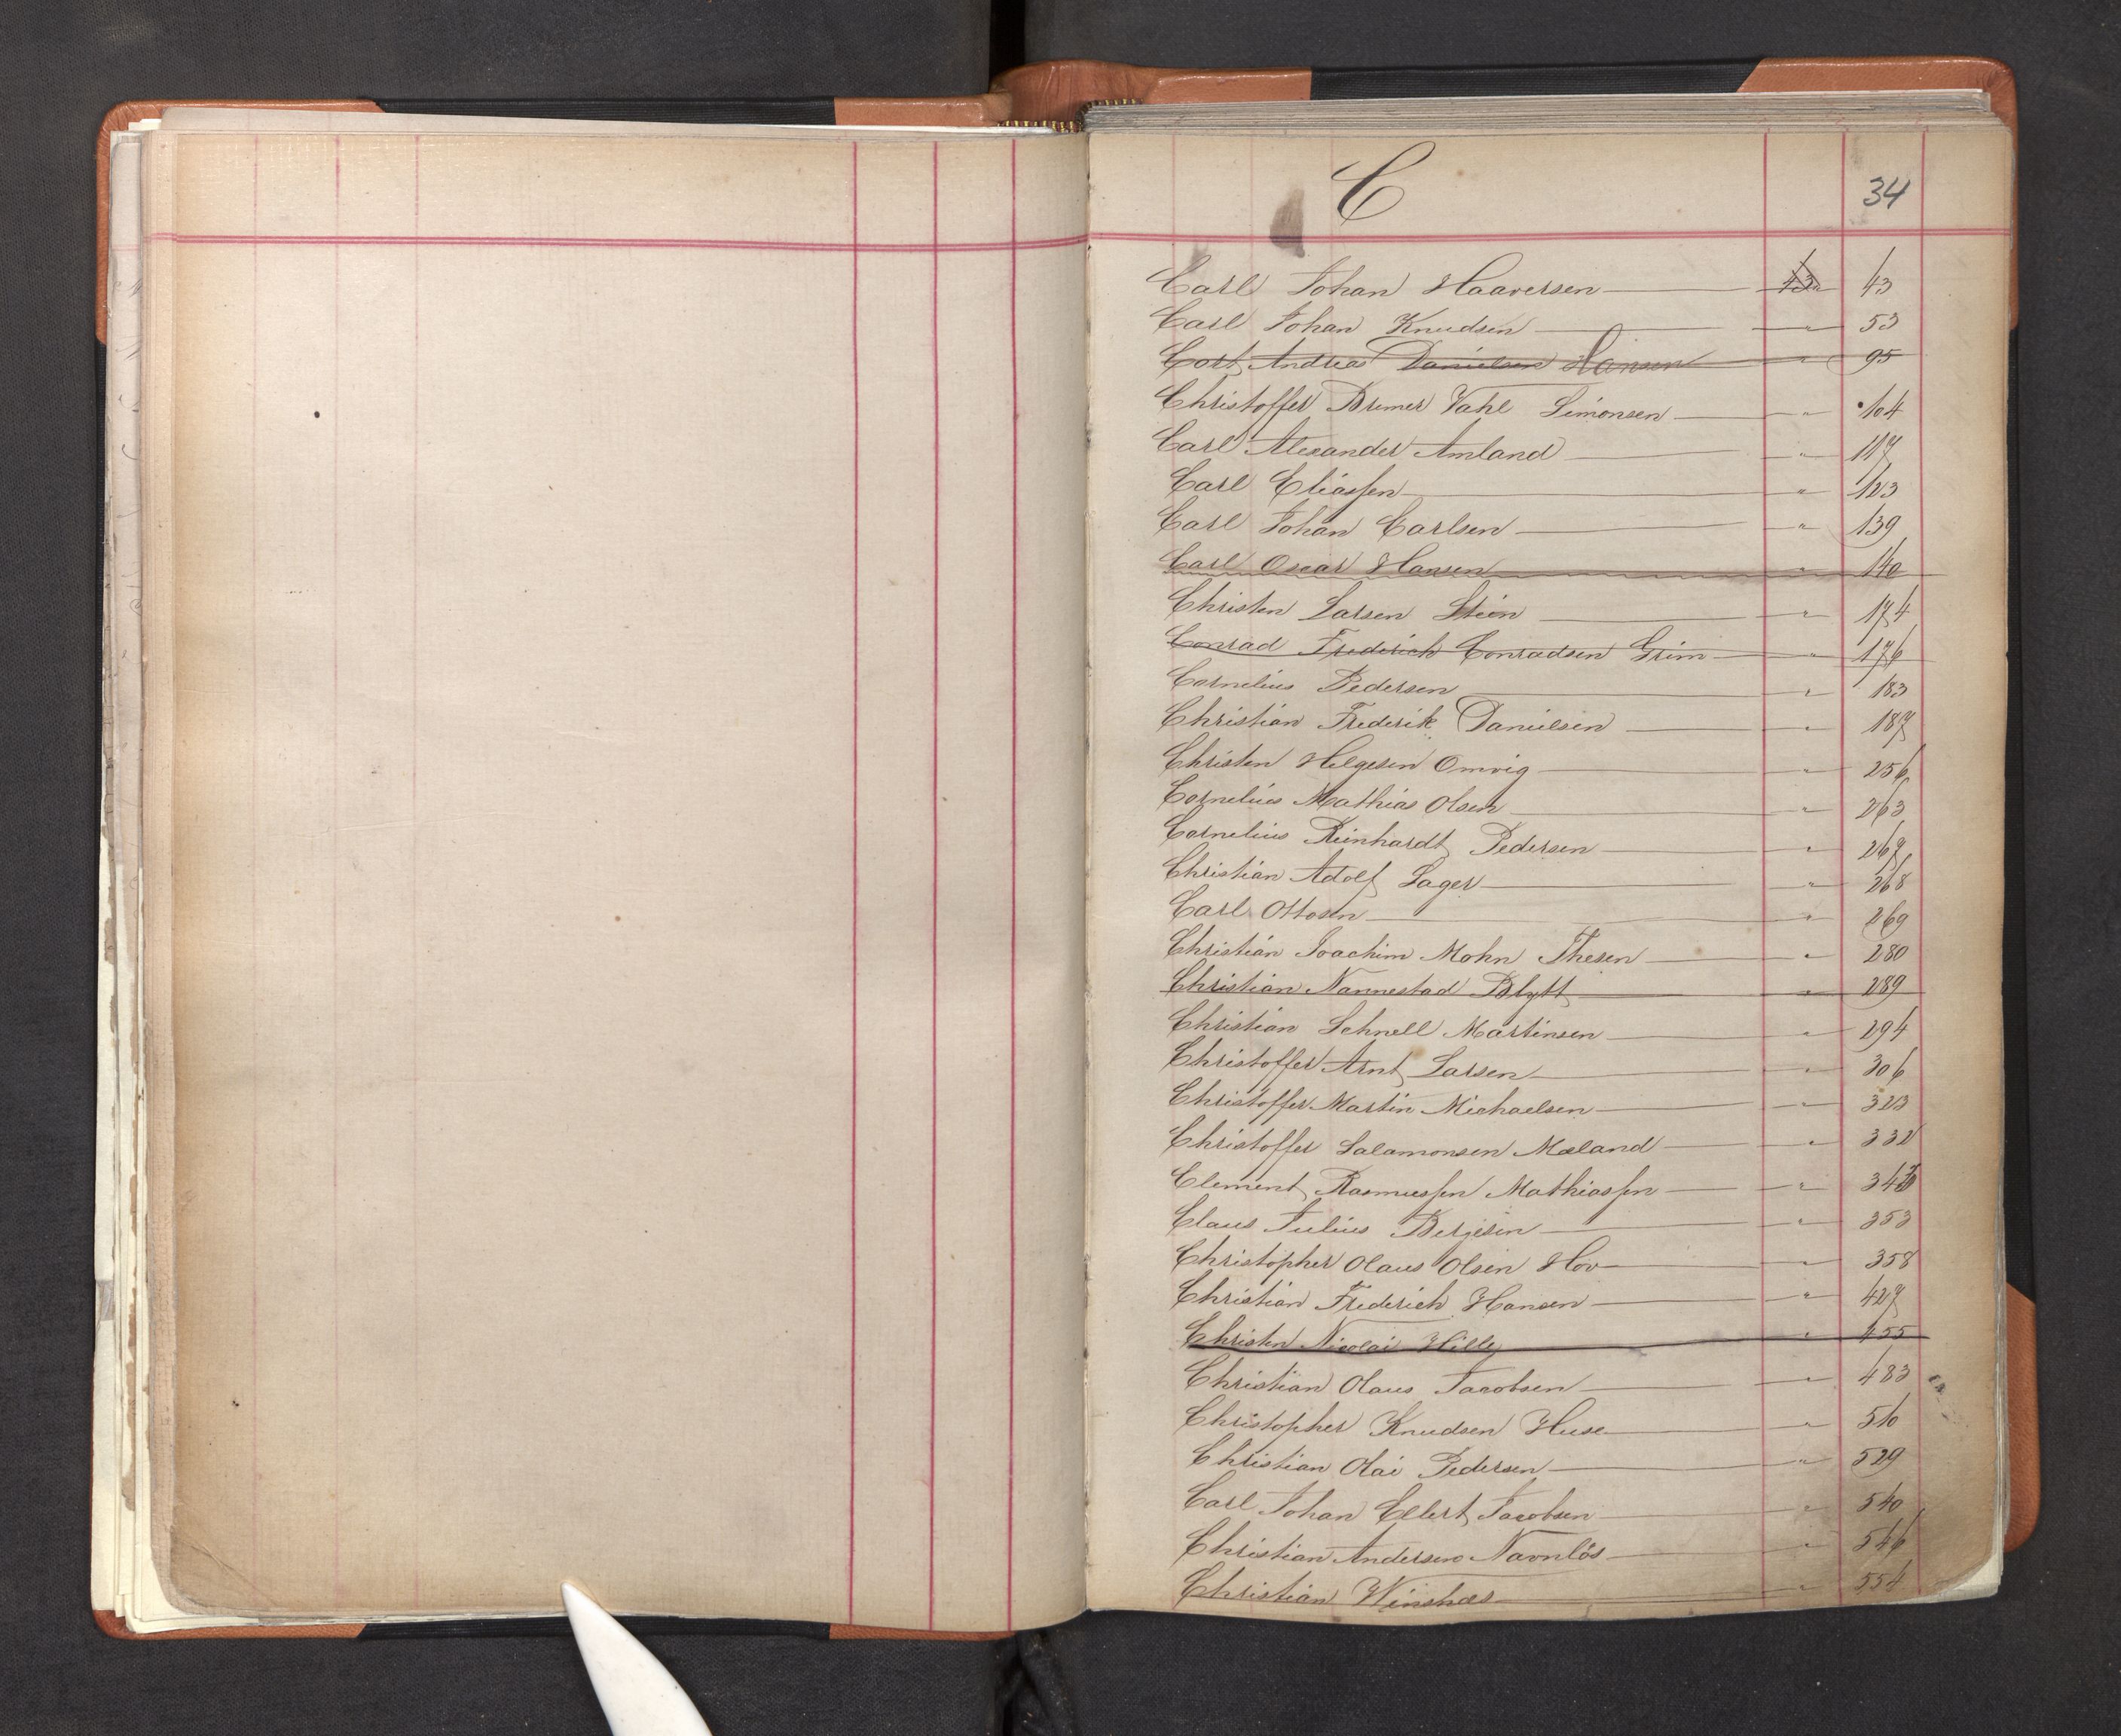 C 34
Carl Johan Haaversen 43 43
Carl Johan Knudsen " 53
Cort Andreas Danielsen Hansen " 95
Christoffer Bremer Vahl Simonsen " 104
Carl Alexander Amland " 117
Carl Eliassen " 123
Carl Johan Carlsen " 139
Carl Oscar Hansen " 140
Christen Larsen Steen " 174
Conrad Frederich Conradsen Grim " 176
Cornelius Pedersen " 183
Christian Frederik Danielsen " 187
Christen Helgesen Omvig " 256
Cornelius Mathias Olsen " 263
Cornelius Reinhardt Pedersen " 267
Christian Adolf Sager " 268
Carl Ottosen " 269
Christian Joachim Mohn Thesen " 280
Christian Nannestad Blytt " 289
Christian Schnell Martinsen " 294
Christoffer Arnt Larsen " 306
Christoffer Martin Michaelsen " 323
Christoffer Salamonsen Mæland " 332
Clement Rasmussen Mathiassen "
Claus Julius Bergesen " 353
Christopher Olaus Olsen Hov " 358
Christian Frederich Hansen " 427
Christen Nicolai Hille " 455
Christian Olaus Jacobsen " 483
Christopher Knudsen Huse " 510
Christian Olai Pedersen " 529
Carl Johan Ellert Jacobsen " 540
Christian Andersen Navnløs " 546
Christian " 554